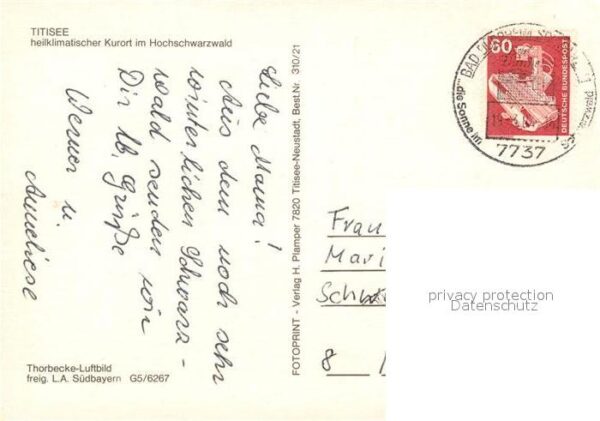 TITISEE
heilklimatischer Kurort im Hochschwarzwald
Liebe Mama!
Aus dem noch sehr
winterlichen Schwarz-
wald senden wir
Dir lb. Grüße
Werner u.
Anneliese
Thorbecke-Luftbild
freig. L.A. Südbayern G5/6267
FOTOPRINT - Verlag H. Plamper 7820 Titisee-Neustadt, Best.Nr 310/21
60
DEUTSCHE BUNDESPOST
BAD
...die Sonne im
7737
Frau
Mari
8
privacy protection
Datenschutz